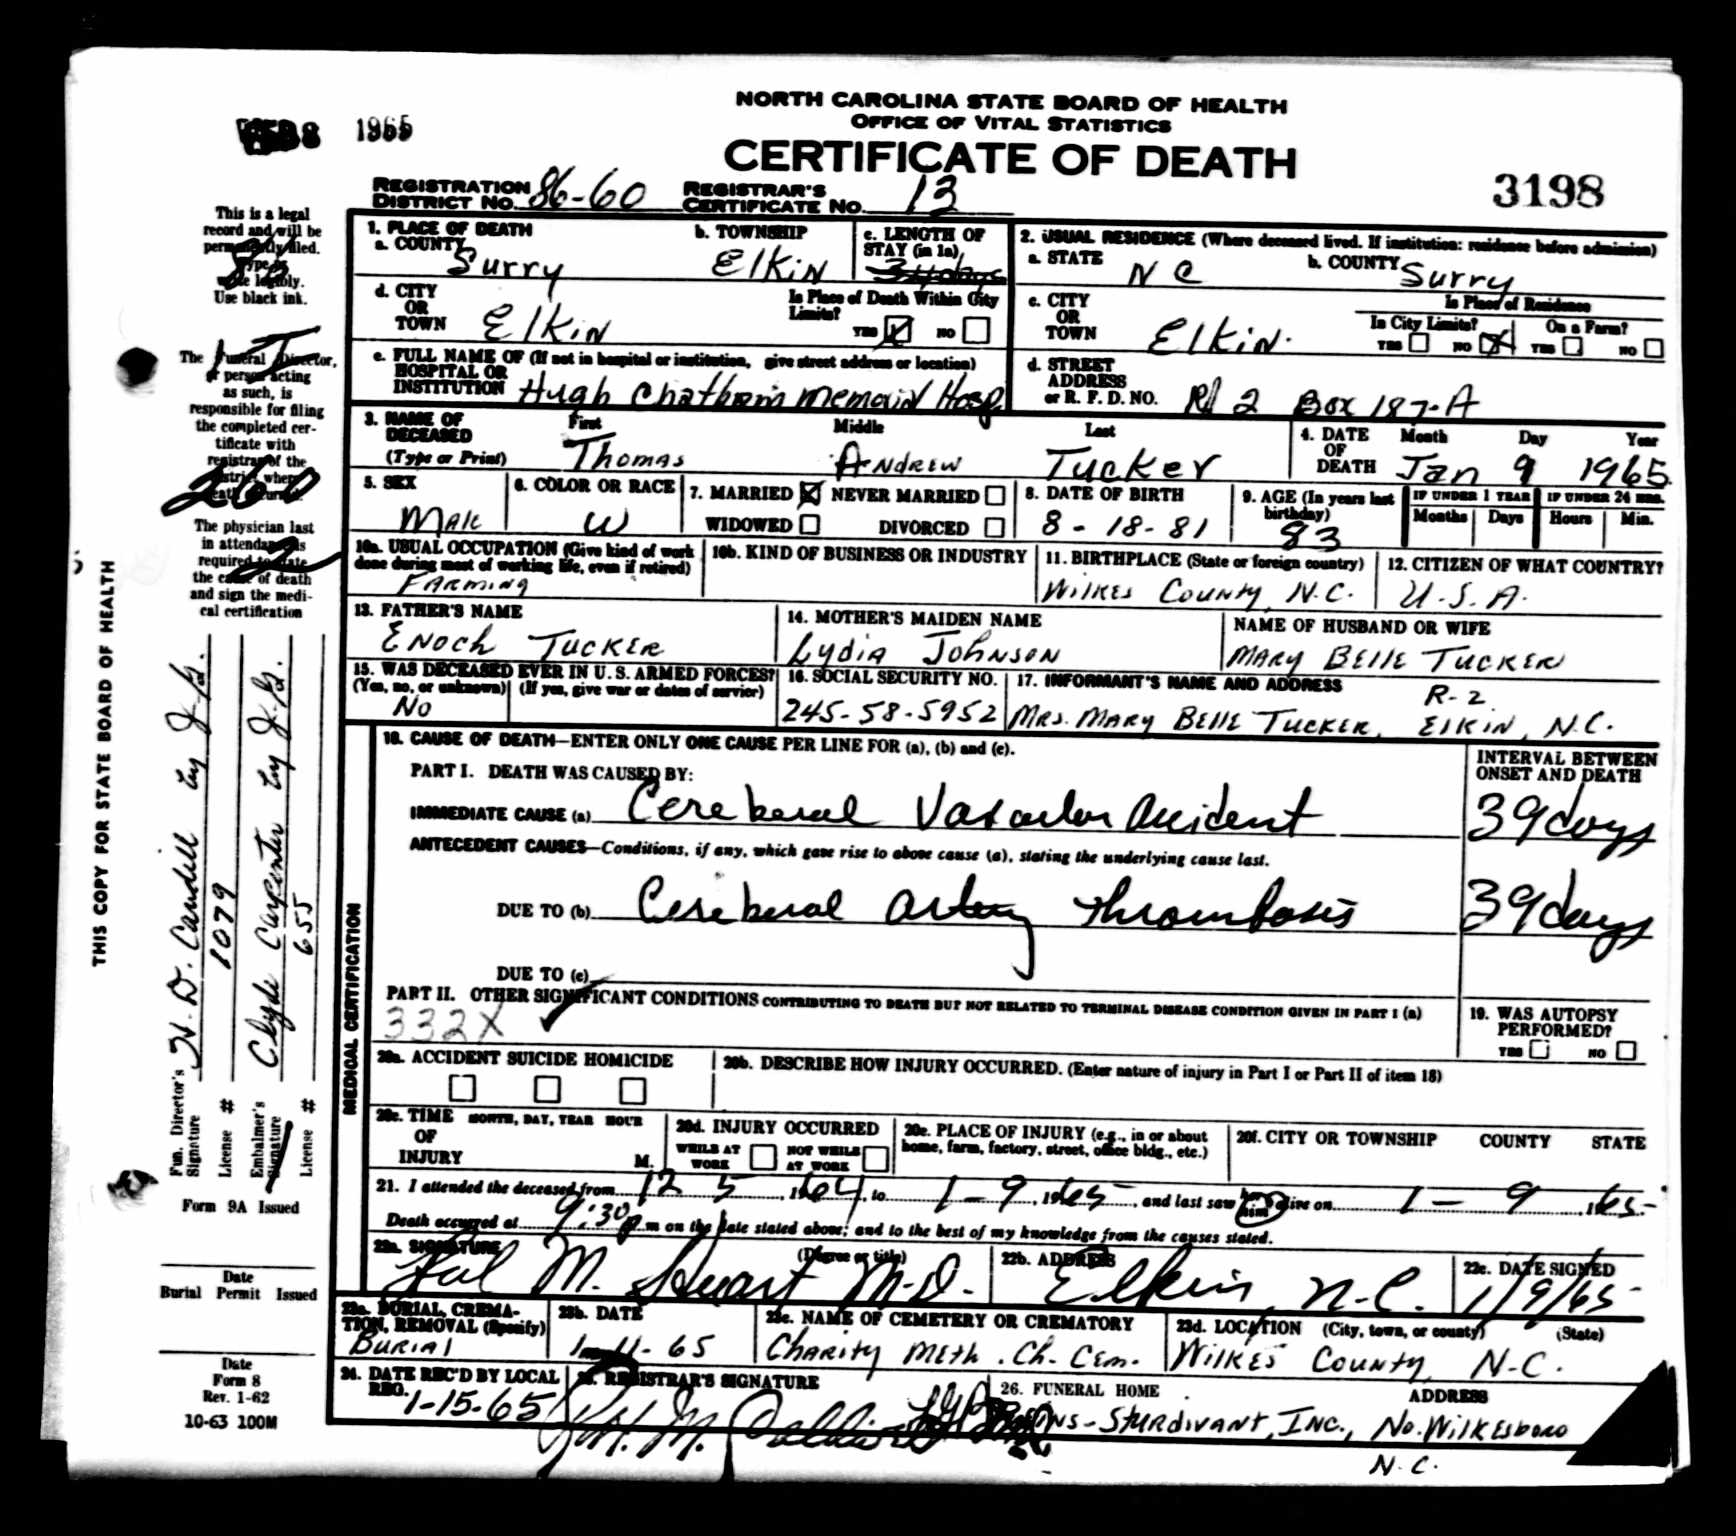 NORTH CAROLINA STATE BOARD OF HEALTH
OFFICE OF VITAL STATISTICS
CERTIFICATE OF DEATH
8 1965
REGISTRATION DISTRICT NO. 86-60 REGISTRAR'S CERTIFICATE NO. 13
3198
This is a legal
record and will be
permanently filed.
Type or
write legibly.
Use black ink.
The Funeral Director,
or person acting
as such, is
responsible for filing
the completed cer-
tificate with
registrar of the
district where
death occurred.
260
The physician last
in attendance is
required to state
the cause of death
and sign the medi-
cal certification
THIS COPY FOR STATE BOARD OF HEALTH
Fun. Director's Signature
License # 1079
Embalmer's Signature Clyde Carpenter by J.G.
License # 655
Form 9A Issued
Date
Burial Permit Issued
Date
Form 8
Rev. 1-62
10-63 100M
1. PLACE OF DEATH
a. COUNTY Surry
b. TOWNSHIP Elkin
c. LENGTH OF STAY (in 1a) 34 days
2. USUAL RESIDENCE (Where deceased lived. If institution: residence before admission)
a. STATE N C
b. COUNTY Surry
d. CITY OR TOWN Elkin
Is Place of Death Within City Limits? YES NO
c. CITY OR TOWN Elkin.
Is Place of Residence
In City Limits? YES NO
On a Farm? YES NO
e. FULL NAME OF (If not in hospital or institution, give street address or location)
HOSPITAL OR INSTITUTION Hugh Chatham Memorial Hosp.
d. STREET ADDRESS or R. F. D. NO. Rt 2 Box 187-A
3. NAME OF DECEASED (Type or Print)
First Thomas Middle Andrew Last Tucker
4. DATE OF DEATH Month Day Year
Jan 9 1965
5. SEX Male
6. COLOR OR RACE W
7. MARRIED NEVER MARRIED
WIDOWED DIVORCED
8. DATE OF BIRTH 8-18-81
9. AGE (In years last birthday) 83
IF UNDER 1 YEAR Months Days
IF UNDER 24 HRS. Hours Min.
10a. USUAL OCCUPATION (Give kind of work done during most of working life, even if retired)
FARMING
10b. KIND OF BUSINESS OR INDUSTRY
11. BIRTHPLACE (State or foreign country)
WILKES COUNTY, N.C.
12. CITIZEN OF WHAT COUNTRY?
U.S.A.
13. FATHER'S NAME
ENOCH TUCKER
14. MOTHER'S MAIDEN NAME
LYDIA JOHNSON
NAME OF HUSBAND OR WIFE
MARY BELLE TUCKER
15. WAS DECEASED EVER IN U.S. ARMED FORCES?
(Yes, no, or unknown) (If yes, give war or dates of service)
NO
16. SOCIAL SECURITY NO.
245-58-5952
17. INFORMANT'S NAME AND ADDRESS
MRS. MARY BELLE TUCKER, R-2 ELKIN, N.C.
MEDICAL CERTIFICATION
18. CAUSE OF DEATH—ENTER ONLY ONE CAUSE PER LINE FOR (a), (b) and (c).
INTERVAL BETWEEN ONSET AND DEATH
PART I. DEATH WAS CAUSED BY:
IMMEDIATE CAUSE (a) Cerebral Vascular Accident 39 days
ANTECEDENT CAUSES—Conditions, if any, which gave rise to above cause (a), stating the underlying cause last.
DUE TO (b) Cerebral artery thrombosis 39 days
DUE TO (c)
PART II. OTHER SIGNIFICANT CONDITIONS CONTRIBUTING TO DEATH BUT NOT RELATED TO TERMINAL DISEASE CONDITION GIVEN IN PART I (a)
332X
19. WAS AUTOPSY PERFORMED?
YES NO
20a. ACCIDENT SUICIDE HOMICIDE
20b. DESCRIBE HOW INJURY OCCURRED. (Enter nature of injury in Part I or Part II of item 18)
20c. TIME OF INJURY MONTH, DAY, YEAR HOUR M.
20d. INJURY OCCURRED
WHILE AT WORK NOT WHILE AT WORK
20e. PLACE OF INJURY (e.g., in or about home, farm, factory, street, office bldg., etc.)
20f. CITY OR TOWNSHIP COUNTY STATE
21. I attended the deceased from 12 5, 1964, to 1-9, 1965, and last saw him alive on 1-9 1965
Death occurred at 9:30 p m on the date stated above; and to the best of my knowledge from the causes stated.
22a. SIGNATURE (Degree or title)
Hal M. Stuart M.D.
22b. ADDRESS
Elkin, N.C.
22c. DATE SIGNED
1/9/65
23a. BURIAL, CREMATION, REMOVAL (Specify)
BURIAL
23b. DATE
1-11-65
23c. NAME OF CEMETERY OR CREMATORY
CHARITY METH. CH. CEM.
23d. LOCATION (City, town, or county) (State)
WILKES COUNTY, N.C.
24. DATE REC'D BY LOCAL REG.
1-15-65
25. REGISTRAR'S SIGNATURE
26. FUNERAL HOME ADDRESS
STURDIVANT, INC., NO. WILKESBORO
N.C.